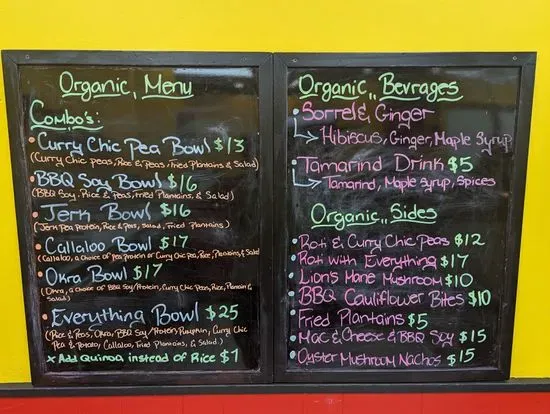 Organic Menu
Combo's:
Curry Chic Pea Bowl $13
(Curry Chic peas, Rice & Peas, Fried Plantains & Salad)
BBQ Soy Bowl $16
(BBQ Soy, Rice & peas, Fried Plantains, & Salad)
Jerk Bowl $16
(Jerk Pea Protein, Rice & Peas, Salad, Fried Plantains)
Callaloo Bowl $17
(Callaloo, a choice of Pea Protein or Curry Chic Pea, Rice, Plantains, & Salad
Okra Bowl $17
(Okra, a choice of BBQ Soy/Protein, Curry Chic Peas, Rice, Plantain &
Salad)
Everything Bowl $25
(Rice & Peas, Okra, BBQ Soy/Protein, Pumpkin, Curry Chic
Pea & Potato, Callaloo, Fried Plantains, & Salad.)
x Add Quinoa instead of Rice $1
Organic Bevrages
Sorrel & Ginger
Hibiscus, Ginger, Maple Syrup
Tamarind Drink $5
Tamarind, Maple Syrup, Spices
Organic Sides
Roti & Curry Chic Peas $12
Roti with Everything $17
Lion's Mane Mushroom $10
BBQ Cauliflower Bites $10
Fried Plantains $5
Mac & Cheese & BBQ Soy $15
Oyster Mushroom Nachos $15